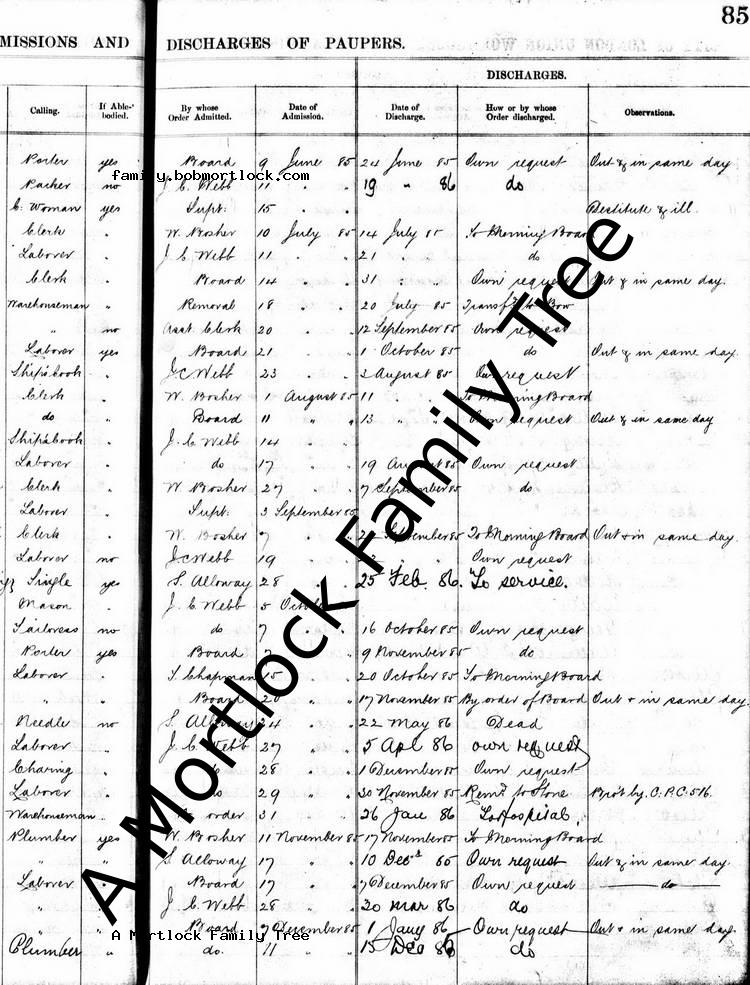 85
MISSIONS AND DISCHARGES OF PAUPERS.
DISCHARGES.
Calling. If Able-bodied. By whose Order Admitted. Date of Admission. Date of Discharge. How or by whose Order discharged. Observations.
Porter yes Board 9 June 85 24 June 85 Own request Out & in same day
Packer no J. C. Webb 11 " " 19 " 86 do
family.bobmortlock.com
C. Woman yes Supt: 15 " " Destitute & ill.
Clerk " W. Bosher 10 July 85 14 July 85 To Morning Board
Laborer " J. C. Webb 11 " " 21 " " do
Clerk " Board 14 " " 31 " Own request Out & in same day.
Warehouseman " Removal 18 " " 20 July 85 Bow
" no Asst Clerk 20 " " 12 September 85 Own request
Laborer yes Board 21 " " 1 October 85 do Out & in same day.
" J C Webb 23 " " 2 August 85 Own request
Clerk " W. Bosher 1 August 85 11 " To Morning Board
do " Board 11 " " 13 " " Own request Out & in same day
" J. C. Webb 14 " "
Laborer " do 17 " " 19 August 85 Own request
Clerk " W. Bosher 27 " " 7 September 85 do
Laborer " Supt: 3 September 85
Clerk " W. Bosher 7 " " September 85 To Morning Board Out & in same day.
Laborer no J C Webb 19 " " Own request
Single yes S. Alloway 28 " " 25 Feb. 86 To service.
Mason " J. C. Webb 5 October
Tailoress no do 7 " " 16 October 85 Own request
Porter yes Board 9 November 85 do
Laborer " S. Chapman 15 " " 20 October 85 To Morning Board
" " Board 20 " " 17 November 85 By order of Board Out & in same day
Needle no S. Alloway 24 " " 22 May 86 Dead
Laborer " J. C. Webb 27 " " 5 Apl 86 own request
Charing " do 28 " " 1 December 85 Own request
Laborer " do 29 " " 30 November 85 Bro't by. C.P.C 516.
Warehouseman " order 31 " " 26 Jan 86 To Hospital
Plumber yes W. Bosher 11 November 85 17 November 85 To Morning Board
" " S Alloway 17 " " 10 Dec Own request Out & in same day.
Laborer " Board 17 " " 7 December 85 Own request do
" " J. C. Webb 28 " " 20 mar 86 do
" " Board 9 December 85 1 Jany 86 Own request Out & in same day.
Plumber " do. 11 " " 15 Dec 86 do
A Mortlock Family Tree
A Mortlock Family Tree